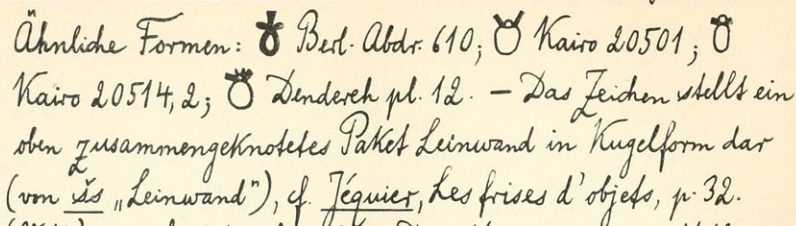 Ähnliche Formen: Berl. Abdr. 610; Kairo 20501;
Kairo 20514,2; Dendereh pl. 12. – Das Zeichen stellt ein
oben zusammengeknotetes Paket Leinwand in Kugelform dar
(von šs „Leinwand"), cf. Jéquier, Les frises d'objets, p. 32.